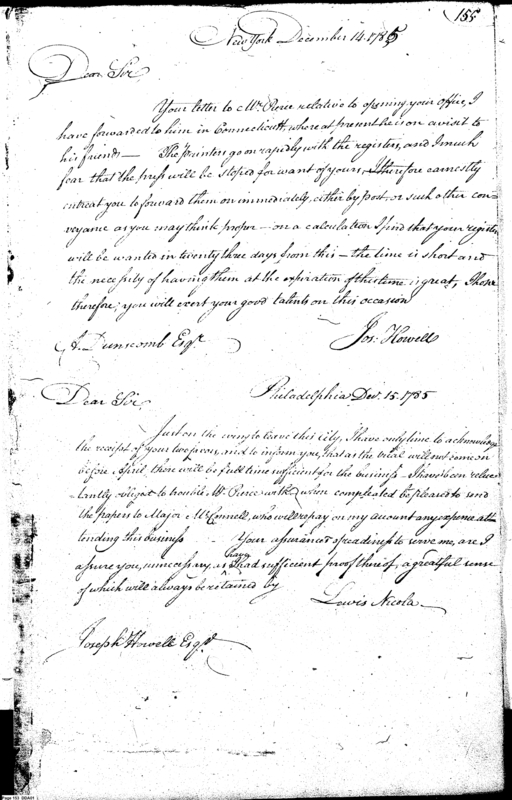 155
New York December 14. 1785
Dear Sir
Your letter to Mr. Pierce relative to opening your office, I
have forwarded to him in Connecticutt, where at present he is on a visit to
his friends — The printers go on rapidly with the registers, and I much
fear that the press will be stoped for want of yours, I therefore earnestly
entreat you to forward them on immediately, either by post, or such other con-
veyance as you may think proper — on a calculation I find that your registers
will be wanted in twenty three days from this — the time is short and
the necessity of having them at the expiration of this time is great, I hope
therefore, you will exert your good talents on this occasion
Jos. Howell
Dunscomb Esqr.
Philadelphia Dec. 15. 1785
Dear Sir
Just on the wing to leave this city, I have only time to acknowledge
the receipt of your two favors, and to inform you, that as the trial will not come on
before April, there will be full time sufficient for the business — I have been reluc-
tantly obliged to trouble Mr. Pierce with when compleated be pleased to send
the papers to Major McConnell, who will repay on my account any expence at-
tending this business — Your assurances of readiness to serve me, are I
assure you, unnecessary, as I have had sufficient proof thereof, a greatful sense
of which will always be retained by
Lewis Nicola
Joseph Howell Esqr.